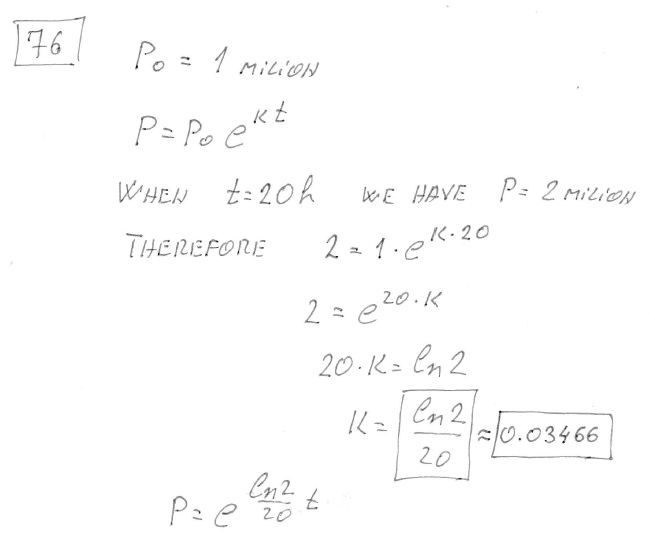 76
P₀ = 1 MILION
P = P₀ e^{kt}
WHEN t=20h WE HAVE P= 2 MILION
THEREFORE 2 = 1·e^{K·20}
2 = e^{20·K}
20·K = ln2
K = ln2/20 ≈ 0.03466
P = e^{ln2/20 t}